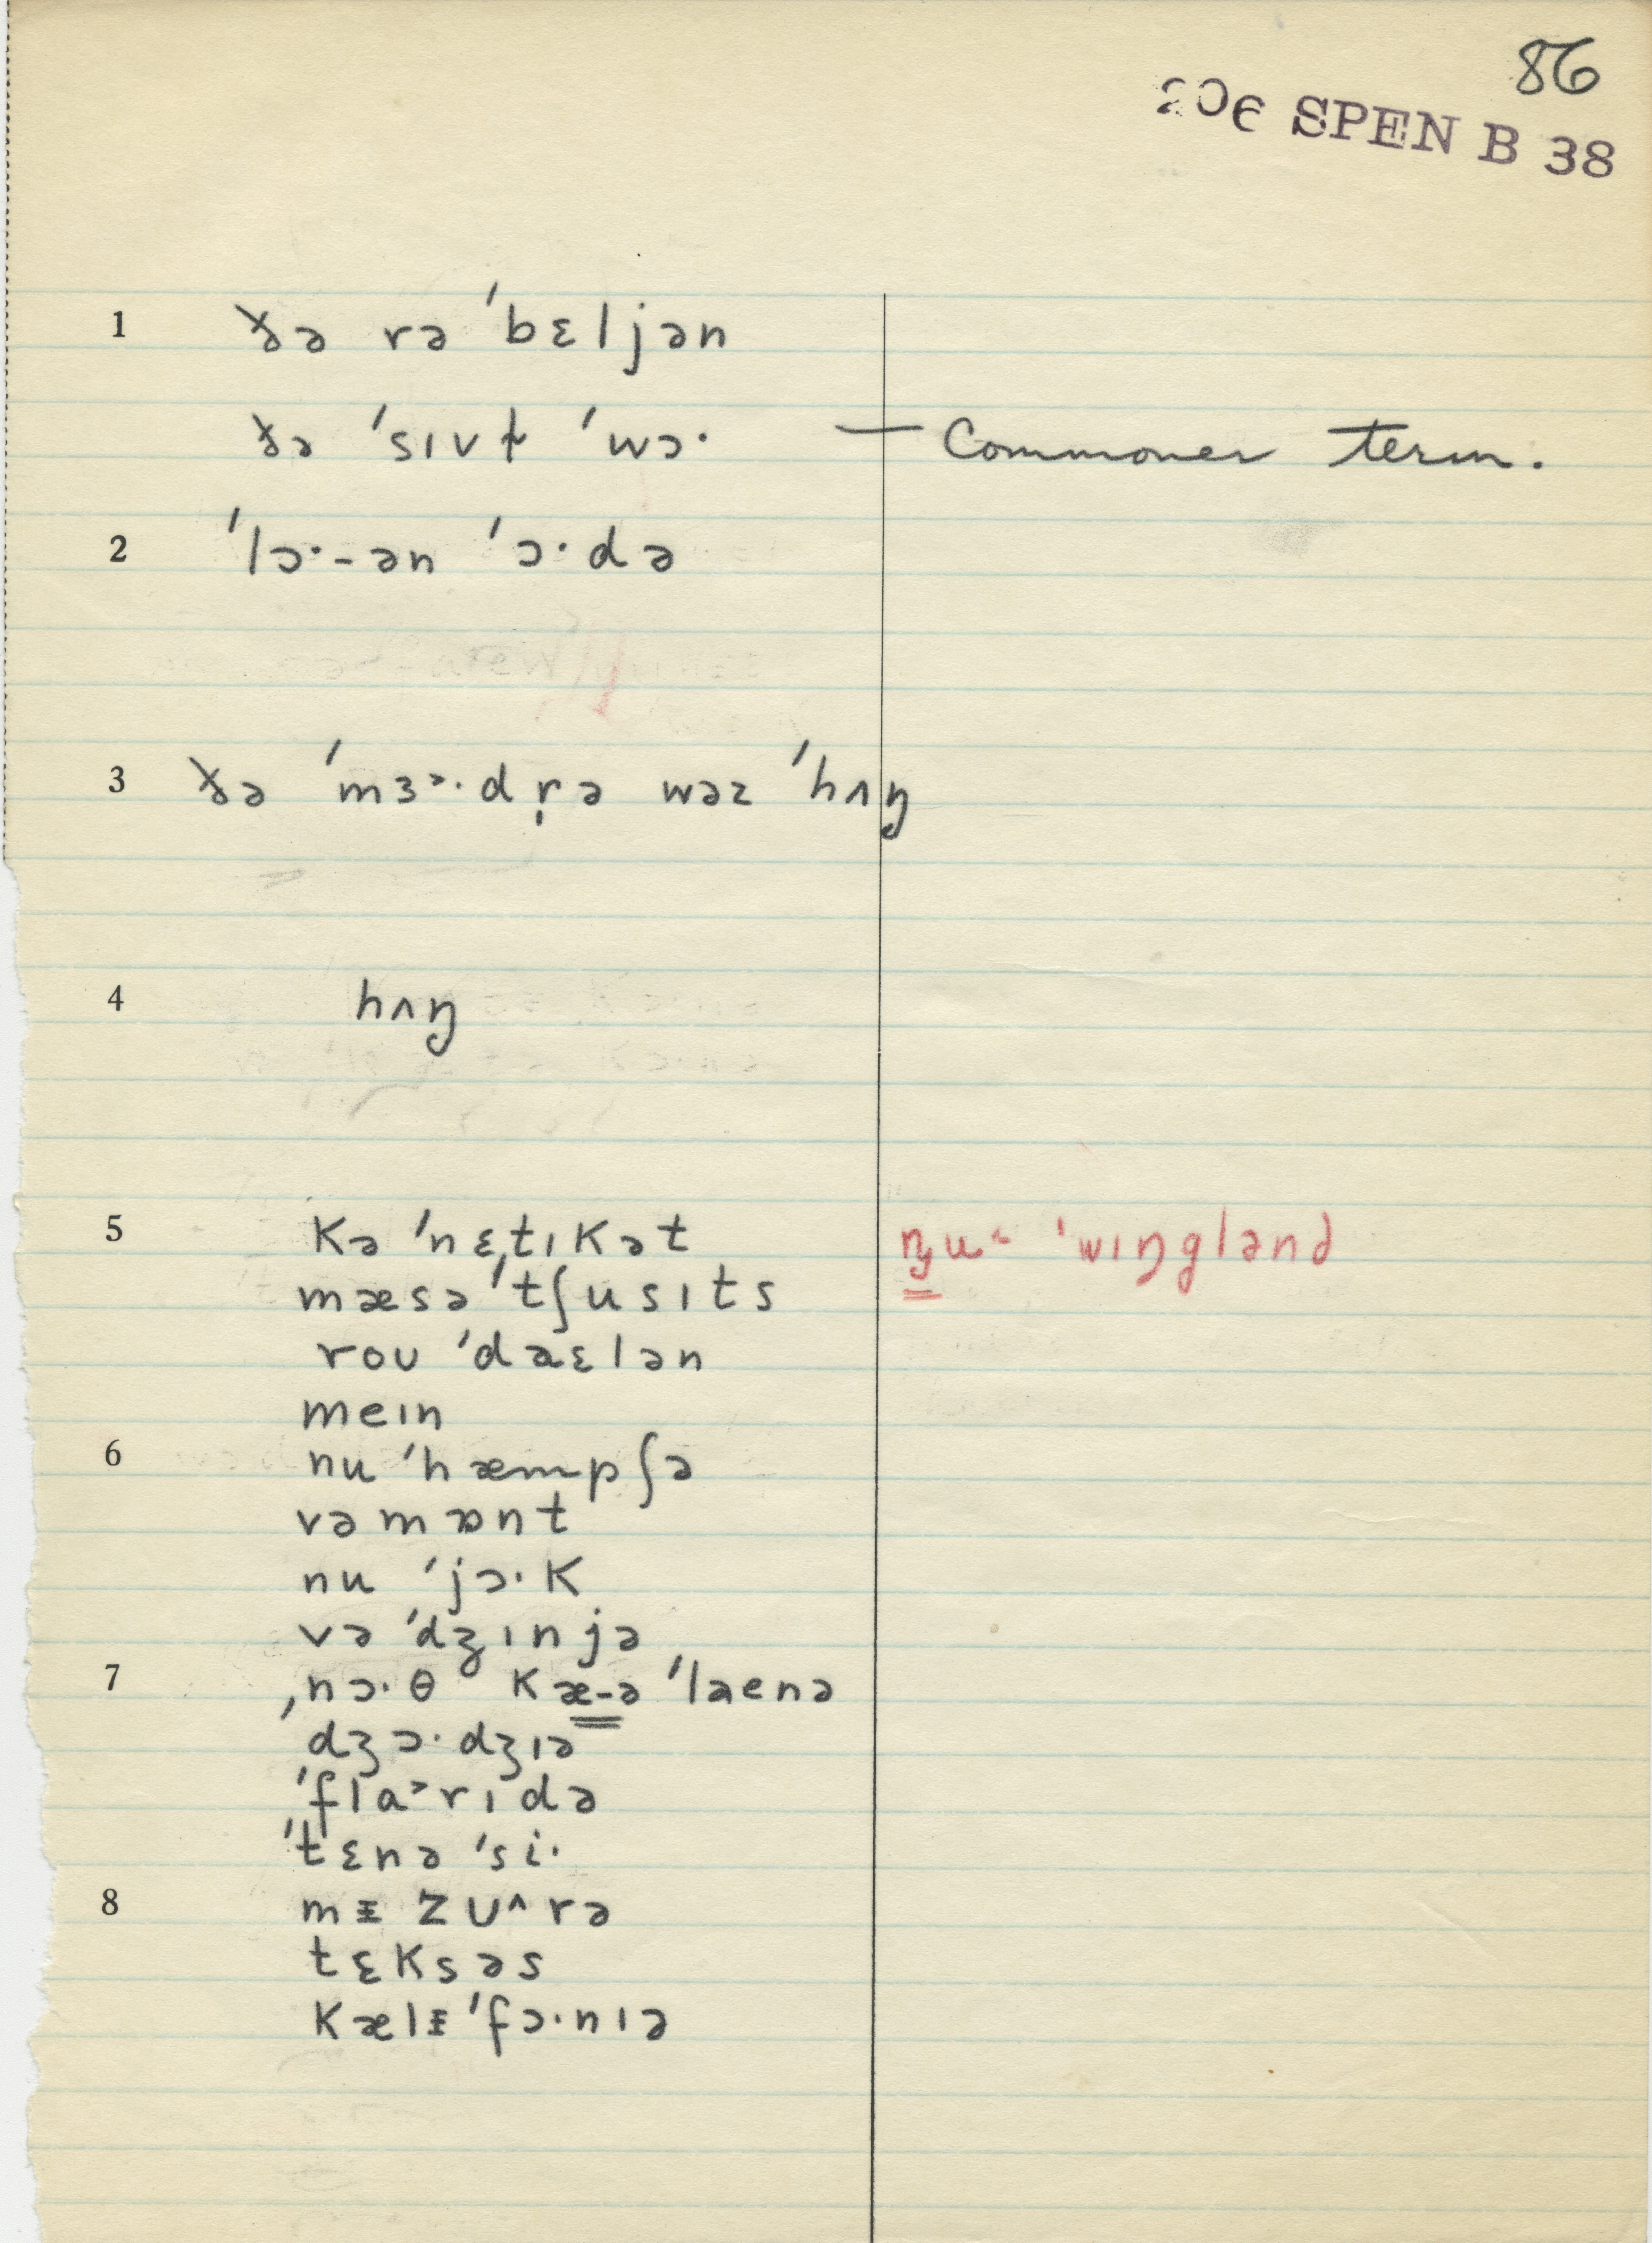 86
206 SPEN B 38
1 ðə rə ˈbɛljən
ðə ˈsɪvɫ ˈwɔ· — Commoner term.
2 ˈlɔ·-ən ˈɔ·də
3 ðə ˈmɜᵊ·dr̩ə wəz ˈhʌŋ
4 hʌŋ
5 kə ˈnɛ̬tɪkət ŋu˞ ˈwɪŋglənd
mæsə ˈtʃusɪts
roʊ ˈdaɛlən
meɪn
6 nu ˈhæmpʃə
vəmɒnt
nu ˈjɔ·k
və ˈdʒɪnjə
7 ˌnɔ·θ kæ-ə ˈlaenə
ˈdʒɔ·dʒɪə
ˈflɑ˃rɪdə
ˈtɛnə ˈsi·
8 mᵻzʊ^rə
tɛksəs
kælᵻˈfɔ·nɪə